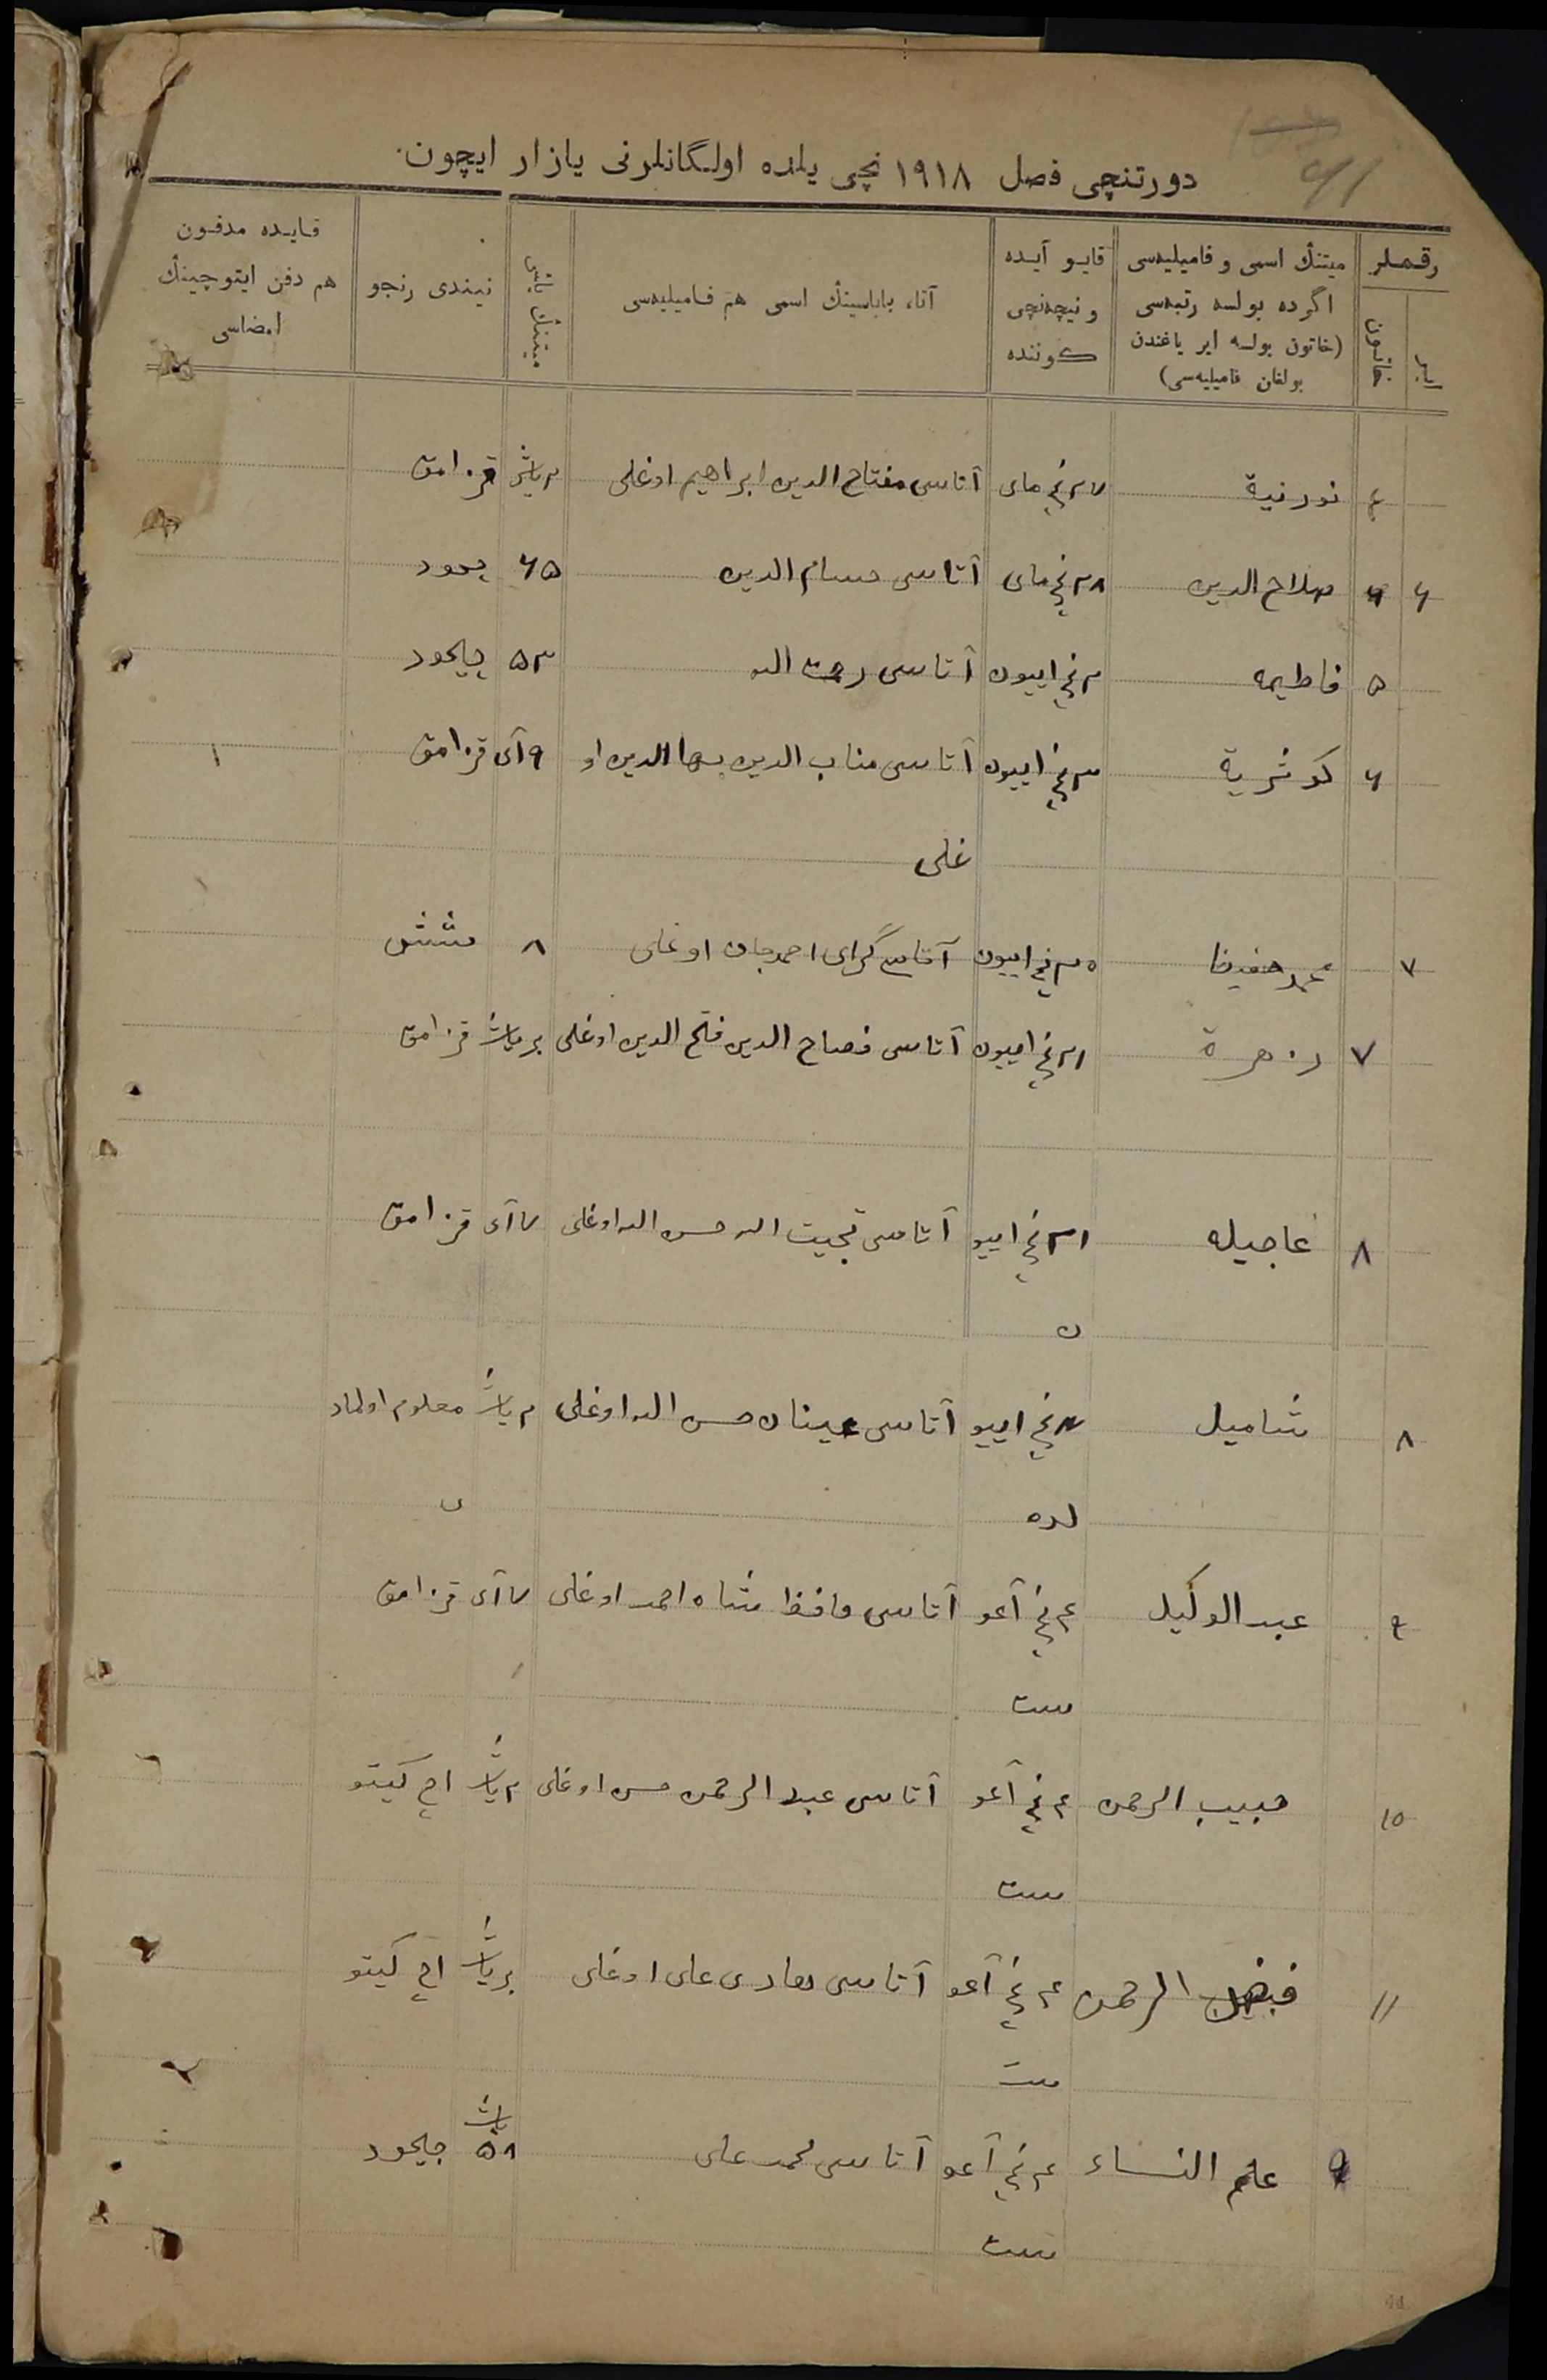 41
دورتنچی فصل ١٩١٨ نچی یلده اولگانلرنی یازار ایچون.
رقملر
ایر
خاتون
میتنڭ اسمی و فامیلیه‌سی اگرده بولسه رتبه‌سی (خاتون بولسه ایر یاغندن بولغان فامیلیه‌سی)
قایو آیده و نیچه‌نچی كوننده
آتا، باباسینڭ اسمی هم فامیلیه‌سی
میتنڭ یاشی
نیندی رنجو
قایده مدفون هم دفن ایتوچینڭ امضاسی
٤ نورنیة ٢٧ نچی مای آتاسی مفتاح الدین ابراهیم اوغلی ٢ یاش قزامق
٦ صلاح الدین ٢٨ نچی مای آتاسی حسام الدین ٦٥ چیحود
٥ فاطیمه ٢ نچی اییون آتاسی رحمت الله ٥٣ چیحود
٦ كوثریة ٣ نچی اییون آتاسی مناب الدین بهاالدین او ٩ آی قزامق
غلی
٧ محمدحفیظ ٢٥ نچی اییون آتاسی گرای احمدجان اوغلی ٨ شش
٧ زهرة ٢١ نچی اییون آتاسی فصاح الدین فتح الدین اوغلی بر یاش قزامق
٨ عاجیله ٢١ نچی اییو آتاسی نجیت الله حسن الله اوغلی ٧ آی قزامق
ن
٨ شامیل نچی اییو آتاسی عینان حسن الله اوغلی ٢ یاش معلوم اولماد
لده ی
٩ عبد الوكیل ٤ نچی آغو آتاسی حافظ شاه احمد اوغلی ٧ آی قزامق
ست
١٥ حبیب الرحمن ٤ نچی آغو آتاسی عبد الرحمن حسن اوغلی ٢ یاش اچ كیتو
ست
١١ فیض الرحمن ٤ نچی آغو آتاسی هادی علی اوغلی بر یاش اچ كیتو
ست
٩ علم النساء ٤ نچی آغو آتاسی محمد علی ٥٨ یاش چیحود
ست